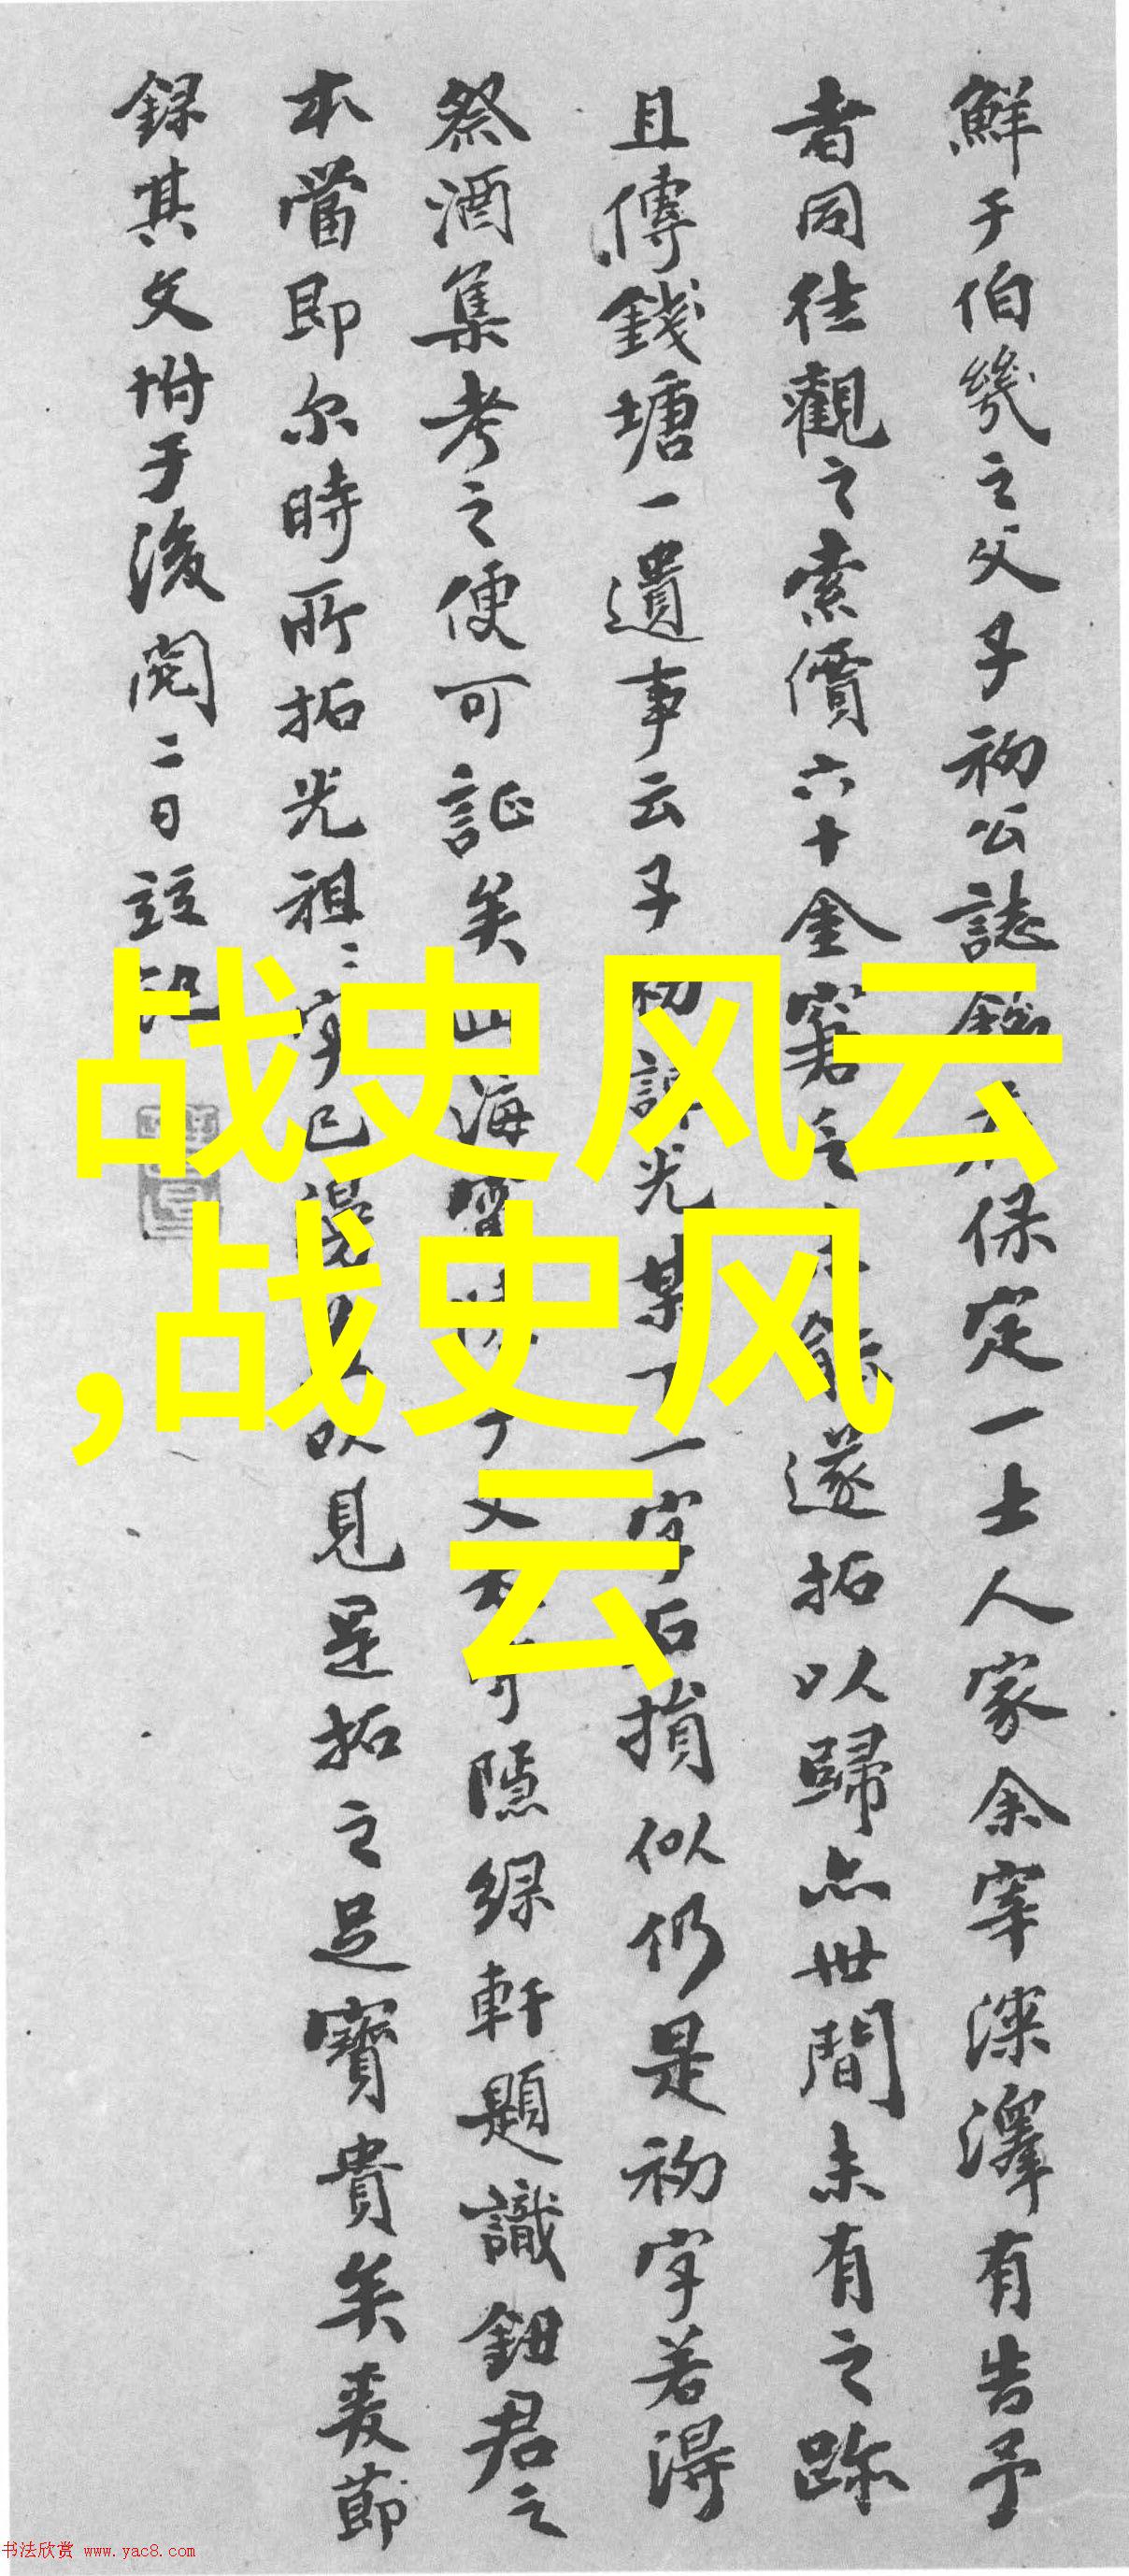 鮮于伯幾之父子初公誌保定一士人家余宰深澤有告予
者同往觀之索價六十金窘之能遂拓以歸亦世間未有之跡
且傳錢塘一遺事云子初諱光某下一字石損似仍是初字若得
祭酒集考之便可証矣山海隱綠軒題識鈕君之
本當即尔時所拓光祖二字已以見是拓之足寶貴矣爰節
錄其文坿于後閏二日
战史风云
,战史风
云
书法欣赏 www.yac8.com